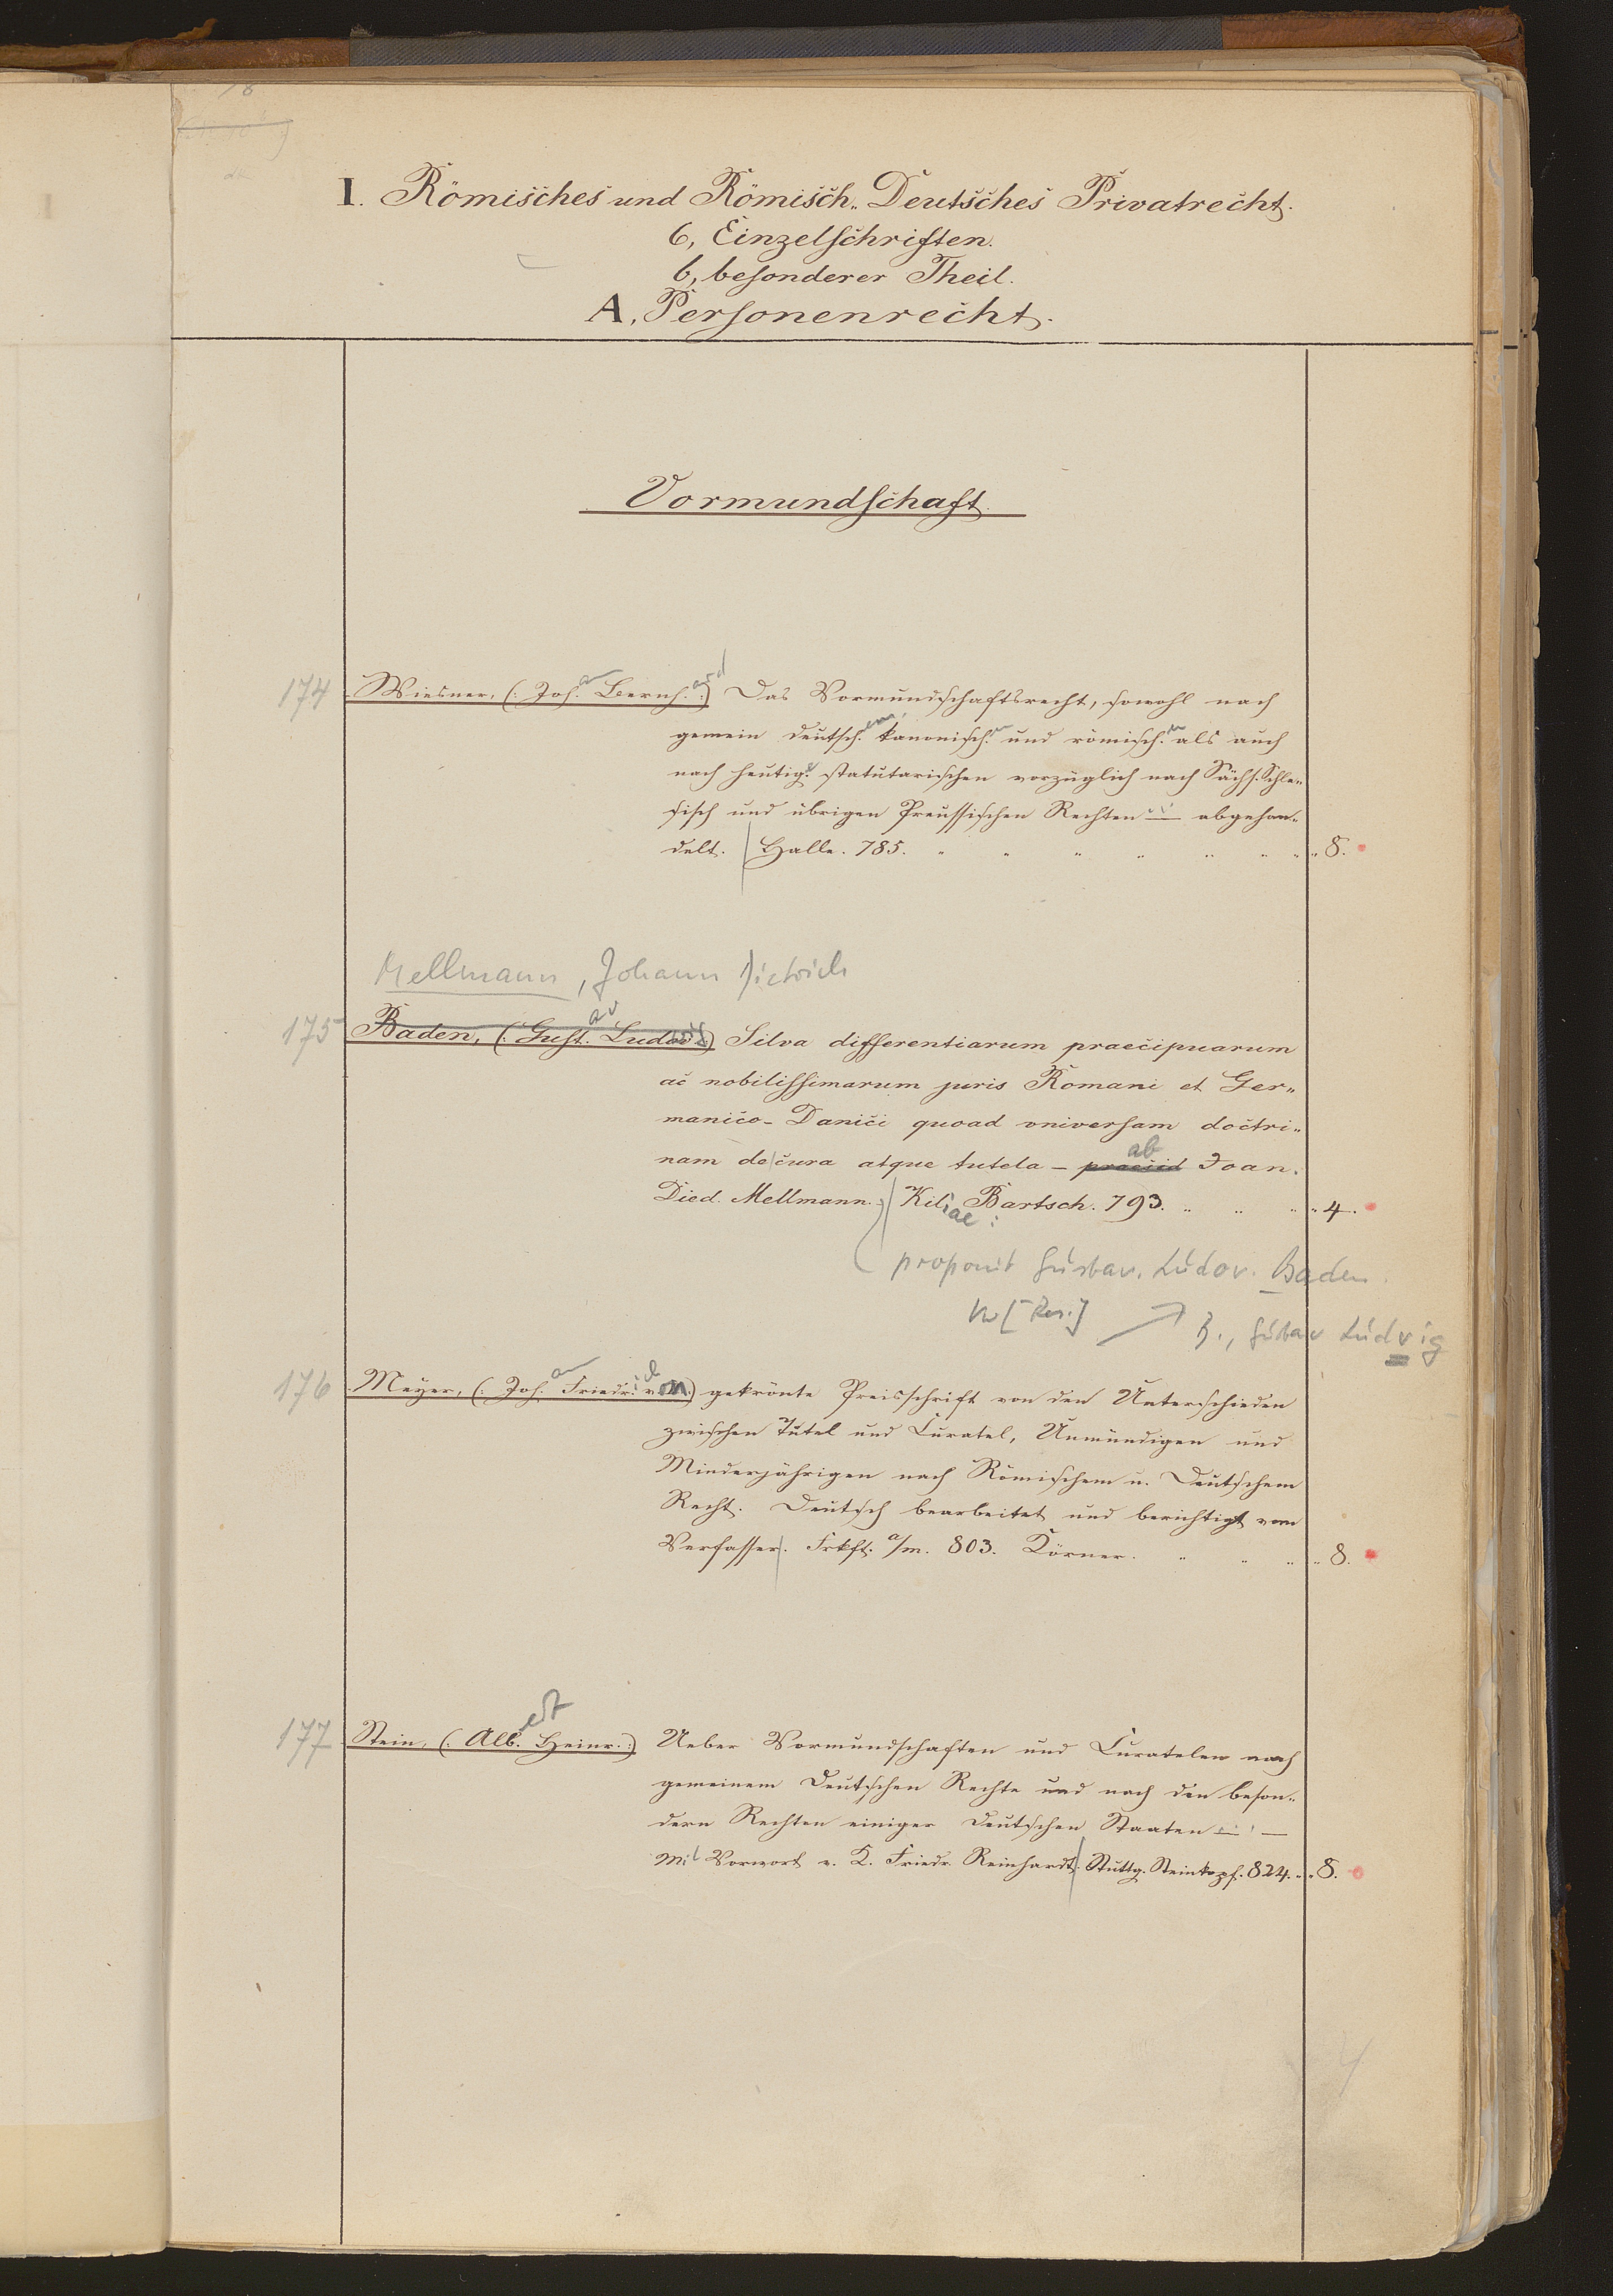 I. Römisches und Römisch„ Deutsches Privatrecht.
6, Einzelschriften.
b, besonderer Theil.
A, Personenrecht.
Vormundschaft.
174 Wiesner, (: Joh.an Bernh.ard :) Das Vormundschaftsrecht, sowohl nach
gemein deutsch.em, kanonisch.n und römisch.n als auch
nach heutig. statutarischen vorzüglich nach Sächs. Schle„
sisch und übrigen Preussischen Rechten abgehan„
delt. | Halle. 785. „ 8.
Mellmann, Johann Dietrich
175 Baden, (: Gust.av Ludov :) Silva differentiarum praecipuarum
ac nobilissimarum juris Romani et Ger„
manico- Danici quoad universam doctri„
nam de cura atque tutela - ab Joan.
Died. Mellmann. Kiliae: Bartsch. 793. „ 4.
proponit Gustav. Ludov. Baden.
Vw [Res.] B., Gustav Ludvig
176 Meyer, (: Joh.an Friedr.ich von :) gekrönte Preisschrift von den Unterschieden
zwischen Tutel und Curatel, Unmündigen und
Minderjährigen nach Römischem u. Deutschem
Recht. Deutsch bearbeitet und berichtigt vom
Verfasser. Frkft. a/m. 803. Körner. „ 8.
177 Stein, (: Alb.ert Heinr. :) Ueber Vormundschaften und Curatelen nach
gemeinem Deutschen Rechte und nach den beson„
dern Rechten einiger Deutschen Staaten —
Mit Vorwort v. K. Friedr. Reinhardt. Stuttg. Steinkopf. 824. „ 8.